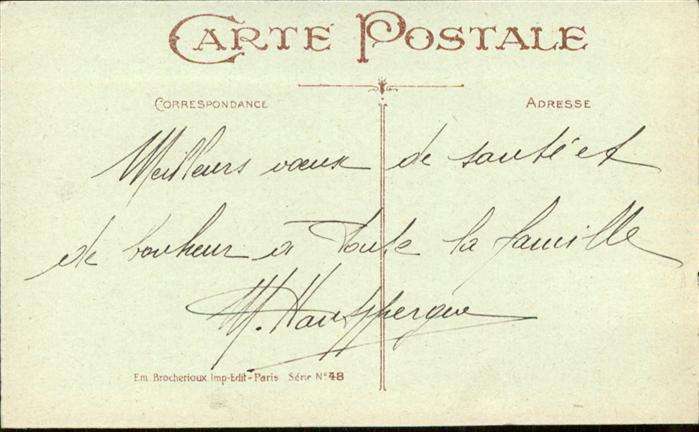 CARTE POSTALE
CORRESPONDANCE
ADRESSE
Meilleurs vœux de santé et
de bonheur à Toute la famille
M.
Em. Brocherioux Imp-Edit-Paris Série N° 48